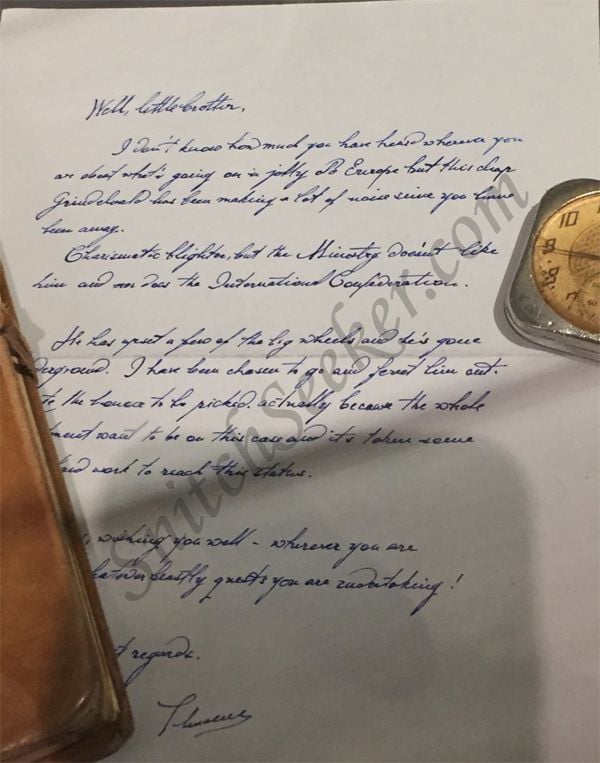 Well, little brother,
I don't know how much you have heard wherever you
are about what's going on in jolly old Europe but this chap
Grindelwald has been making a lot of noise since you have
been away.
Charismatic blighter, but the Ministry doesn't like
him and nor does the International Confederation.
He has upset a few of the big wheels and he's gone
derground. I have been chosen to go and ferret him out.
te the honour to be picked, actually because the whole
tment want to be on this case and it's taken some
ard work to reach this status.
wishing you well - wherever you are
hatever beastly quests you are undertaking!
t regards.
Theseus
SnitchSeeker.com
10